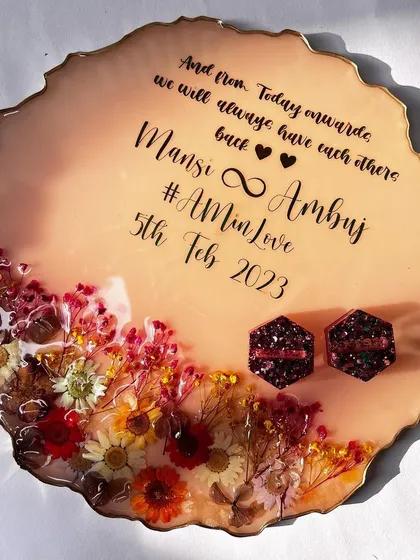 And from Today onwards,
we will always have each others
back ♥♥
Mansi ∞ Ambuj
#AMinLove
5th Feb 2023